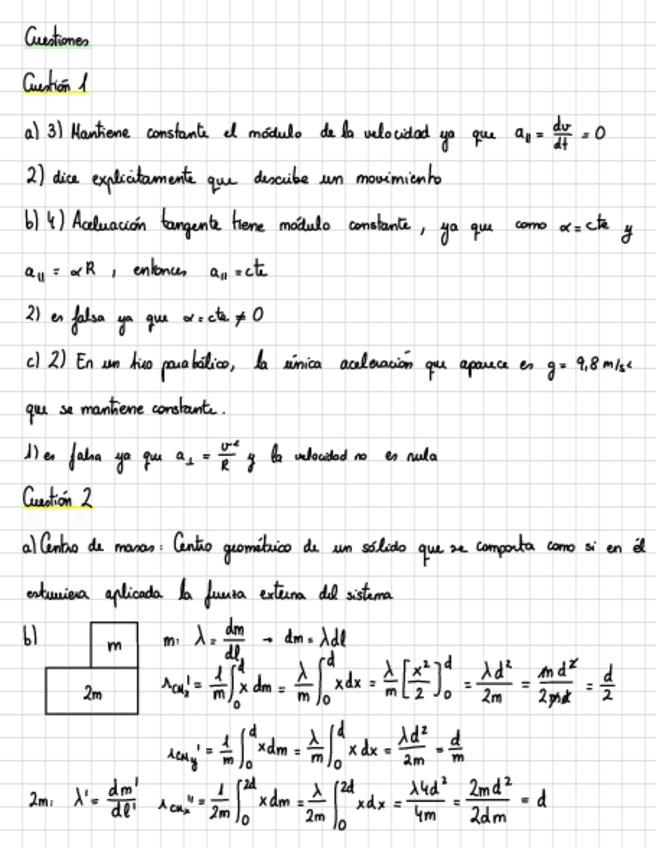 Cuestiones
Cuestión 1
a) 3) Mantiene constante el módulo de la velocidad ya que a_∥ = dv/dt = 0
2) dice explícitamente que describe un movimiento
b) 4) Aceleración tangente tiene módulo constante, ya que como α = cte y
a_∥ = αR, entonces a_∥ = cte
2) es falsa ya que α = cte ≠ 0
c) 2) En un tiro parabólico, la única aceleración que aparece es g = 9,8 m/s²
que se mantiene constante.
1) es falsa ya que a_⊥ = v²/R y la velocidad no es nula
Cuestión 2
a) Centro de masas: Centro geométrico de un sólido que se comporta como si en él
estuviera aplicada la fuerza externa del sistema
b) m: λ = dm/dl → dm = λdl
m
2m
r_CMx' = 1/m ∫₀^d x dm = λ/m ∫₀^d x dx = λ/m [x²/2]₀^d = λd²/2m = md²/2md = d/2
r_CMy' = 1/m ∫₀^d x dm = λ/m ∫₀^d x dx = λd²/2m = d/m
2m: λ' = dm'/dl' r_CMx'' = 1/2m ∫₀^2d x dm = λ/2m ∫₀^2d x dx = λ4d²/4m = 2md²/2dm = d